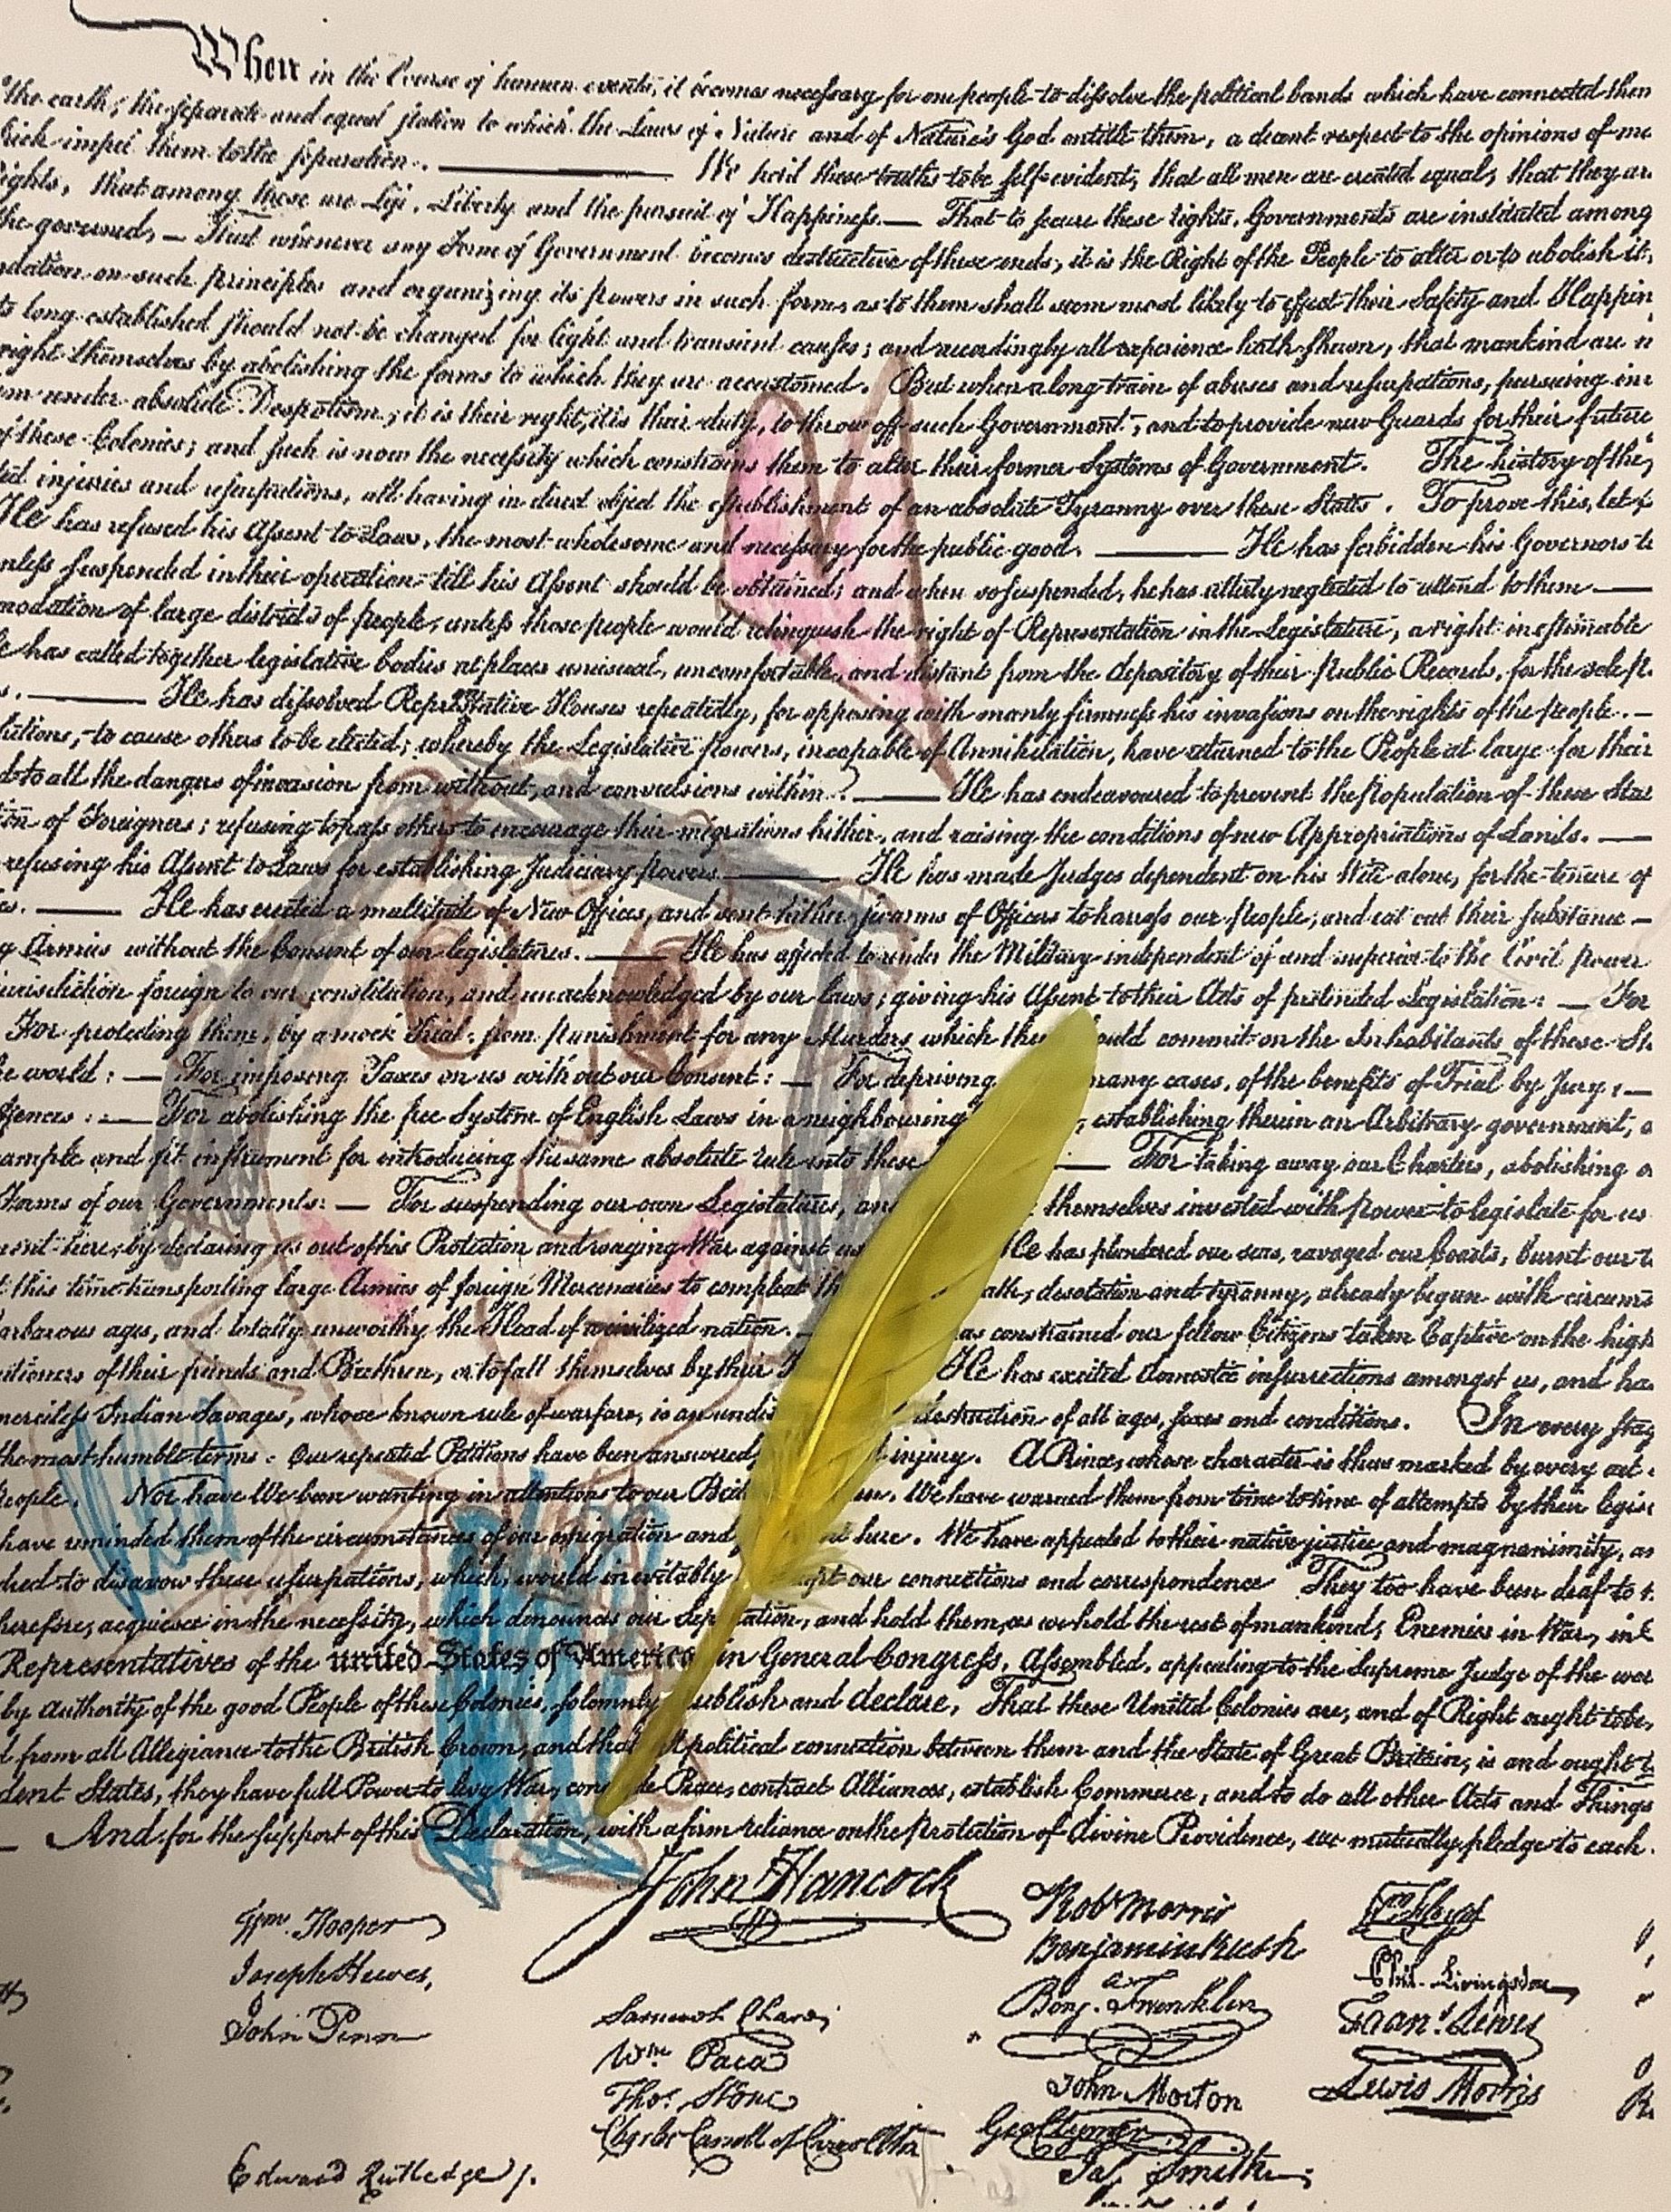 When in the Course of human events, it becomes necessary for one people to dissolve the political bands which have connected them
the earth, the separate and equal station to which the Laws of Nature and of Nature's God entitle them, a decent respect to the opinions of
impel them to the separation. We hold these truths to be self-evident, that all men are created equal, that they
that among these are Life, Liberty and the pursuit of Happiness.— That to secure these rights, Governments are instituted among
the governed, — That whenever any Form of Government becomes destructive of these ends, it is the Right of the People to alter or to abolish it,
on such principles and organizing its powers in such form, as to them shall seem most likely to effect their Safety and
long established should not be changed for light and transient causes; and accordingly all experience hath shewn, that mankind are
right themselves by abolishing the forms to which they are accustomed. But when a long train of abuses and usurpations, pursuing
under absolute Despotism, it is their right, it is their duty, to throw off such Government, and to provide new Guards for their future
of these Colonies; and such is now the necessity which constrains them to alter their former Systems of Government. The history of the
injuries and usurpations, all having in direct object the establishment of an absolute Tyranny over these States. To prove this, let
He has refused his Assent to Laws, the most wholesome and necessary for the public good. He has forbidden his Governors
suspended in their operation till his Assent should be obtained; and when so suspended, he has utterly neglected to attend to them
of large districts of people, unless those people would relinquish the right of Representation in the Legislature, a right inestimable
has called together legislative bodies at places unusual, uncomfortable, and distant from the depository of their Public Records, for the sole
He has dissolved Representative Houses repeatedly, for opposing with manly firmness his invasions on the rights of the people. —
to cause others to be elected; whereby the Legislative Powers, incapable of Annihilation, have returned to the People at large for their
to all the dangers of invasion from without, and convulsions within. He has endeavoured to prevent the Population of these
of Foreigners; refusing to pass others to encourage their migrations hither, and raising the conditions of new Appropriations of Lands. —
refusing his Assent to Laws for establishing Judiciary Powers. He has made Judges dependent on his Will alone, for the tenure of
He has erected a multitude of New Offices, and sent hither swarms of Officers to harrass our People, and eat out their substance —
Armies without the Consent of our legislatures. He has affected to render the Military independent of and superior to the Civil Power
foreign to our constitution, and unacknowledged by our laws; giving his Assent to their Acts of pretended Legislation: — For
For protecting them, by a mock Trial, from punishment for any Murders which they should commit on the Inhabitants of these
world: — For imposing Taxes on us without our Consent: — For depriving many cases, of the benefits of Trial by Jury: —
For abolishing the free System of English Laws in a neighbouring establishing therein an Arbitrary government,
and fit instrument for introducing the same absolute rule into these For taking away our Charters, abolishing
Forms of our Governments: — For suspending our own Legislatures, themselves invested with power to legislate for us
here, by declaring us out of his Protection and waging War against us He has plundered our seas, ravaged our Coasts, burnt our
this time transporting large Armies of foreign Mercenaries to compleat desolation and tyranny, already begun with
ages, and totally unworthy the Head of a civilized nation. constrained our fellow Citizens taken Captive on the high
of their friends and Brethren, or to fall themselves by their He has excited domestic insurrections amongst us, and
merciless Indian Savages, whose known rule of warfare, is an destruction of all ages, sexes and conditions. In every
the most humble terms: Our repeated Petitions have been answered injury. A Prince, whose character is thus marked by every act
Nor have We been wanting in attention to our We have warned them from time to time of attempts by their
have reminded them of the circumstances of our emigration and here. We have appealed to their native justice and magnanimity,
to disavow these usurpations, which, would inevitably our connections and correspondence They too have been deaf to
therefore, acquiesce in the necessity, which denounces our Separation, and hold them, as we hold the rest of mankind, Enemies in War, in
Representatives of the united States of America in General Congress, Assembled, appealing to the Supreme Judge of the
by Authority of the good People of these Colonies, solemnly publish and declare, That these United Colonies are, and of Right ought to be,
from all Allegiance to the British Crown, and that political connection between them and the State of Great Britain, is and ought
States, they have full Power to levy War, conclude Peace, contract Alliances, establish Commerce, and to do all other Acts and Things
And for the support of this Declaration, with a firm reliance on the protection of divine Providence, we mutually pledge to each
John Hancock
Wm. Hooper
Joseph Hewes,
John Penn
Edward Rutledge
Samuel Chase
Wm. Paca
Thos. Stone
Charles Carroll of Carrollton
Robt Morris
Benjamin Rush
Benj. Franklin
John Morton
Geo Clymer
Jas. Smith
Wm Floyd
Phil. Livingston
Frans. Lewis
Lewis Morris